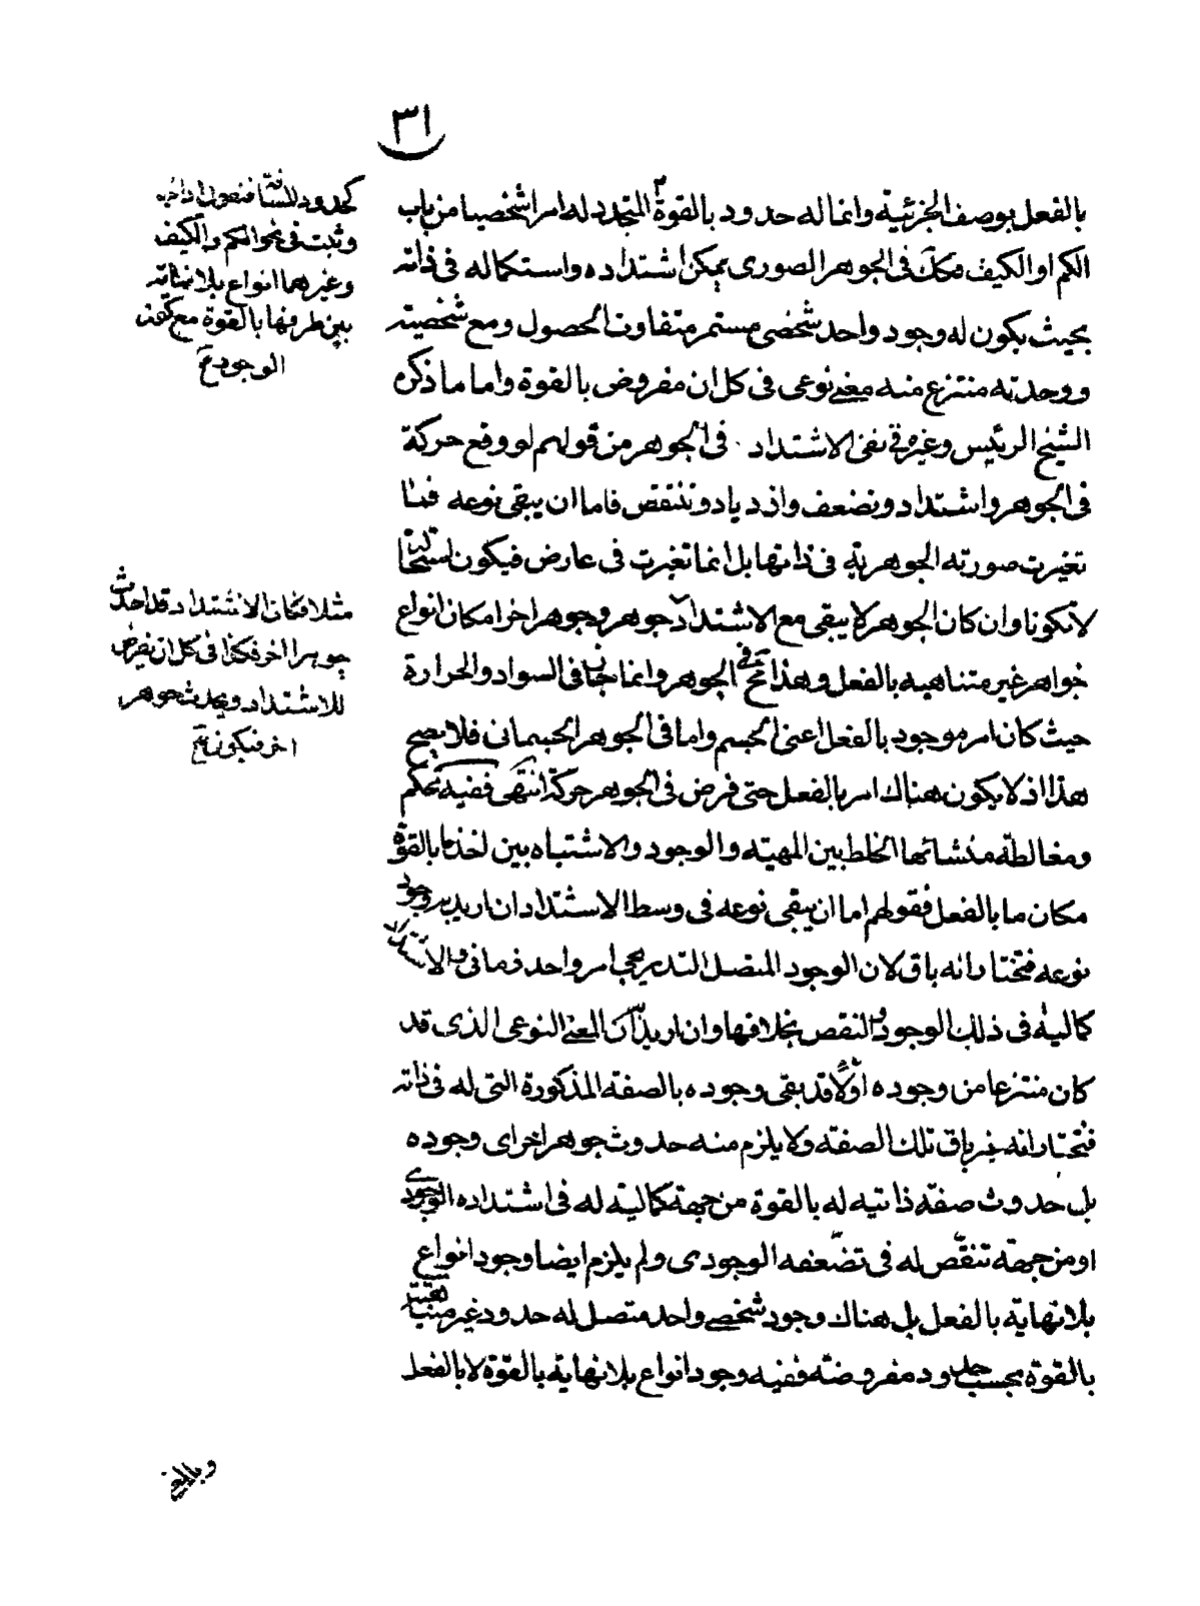 ٣١
بالفعل بوصف الجزئية وانما له حدود بالقوة المتجدد له امرا شخصيا من باب
الكم او الكيف فكك فى الجوهر الصورى يمكن اشتداده واستكماله فى ذاته
بحيث يكون له وجود واحد شخصى مستمر متفاوت الحصول ومع شخصيته
ووحدته منتزع منه معنى نوعى فى كل ان مفروض بالقوة واما ما ذكره
الشيخ الرئيس وغيره فى نفى الاشتداد فى الجوهر من قولهم لو وقع حركة
فى الجوهر واشتداد وتضعف وازدياد وتنقص فاما ان يبقى نوعه فما
تغيرت صورته الجوهرية فى ذاتها بل انما تغيرت فى عارض فيكون استحالة
لا تكونا وان كان الجوهر لا يبقى مع الاشتداد جوهر وجوهر اخر امكان انواع
جواهر غير متناهيه بالفعل وهذا مح فى الجوهر وانما جاز فى السواد والحرارة
حيث كان امر موجود بالفعل اعنى الجسم واما فى الجوهر الجسمانى فلا يصح
هذا اذ لا يكون هناك امر بالفعل حتى فرض فى الجوهر حركة انتهى ففيه تحكم
ومغالطة منشائها الخلط بين المهية والوجود والاشتباه بين اخذ ما بالقوة
مكان ما بالفعل فقولهم اما ان يبقى نوعه فى وسط الاشتداد ان اريد به وجود
نوعه فنختار انه باق لان الوجود المتصل التدريجى امر واحد زمانى والاشتداد
كمالية فى ذلك الوجود والنقص بخلافها وان اريد ان المعنى النوعى الذى قد
كان منتزعا من وجوده اولا قد بقى وجوده بالصفة المذكورة التى له فى ذاته
فنختار انه غير باق تلك الصفة ولا يلزم منه حدوث جوهر اخر اى وجوده
بل حدوث صفة ذاتيه له بالقوة من جهة كمالية له فى اشتداده الوجودى
او من جهة تنقص له فى تضعفه الوجودى ولم يلزم ايضا وجود انواع
بلا نهاية بالفعل بل هناك وجود شخصى واحد متصل له حدود غير متناهية
بالقوة بحسب حدود مفروضة ففيه وجود انواع بلا نهاية بالقوة لا بالفعل
كحدود للمسافة
وثبت فى نحو الكم والكيف
وغيرهما انواع بلا نهاية
بين طرفها بالقوة مع كون
الوجود
مثلا فكان الاشتداد قد احدث
جوهرا اخر فكذا فى كل ان يفرض
للاشتداد ويحدث جوهر
اخر فيكون بين